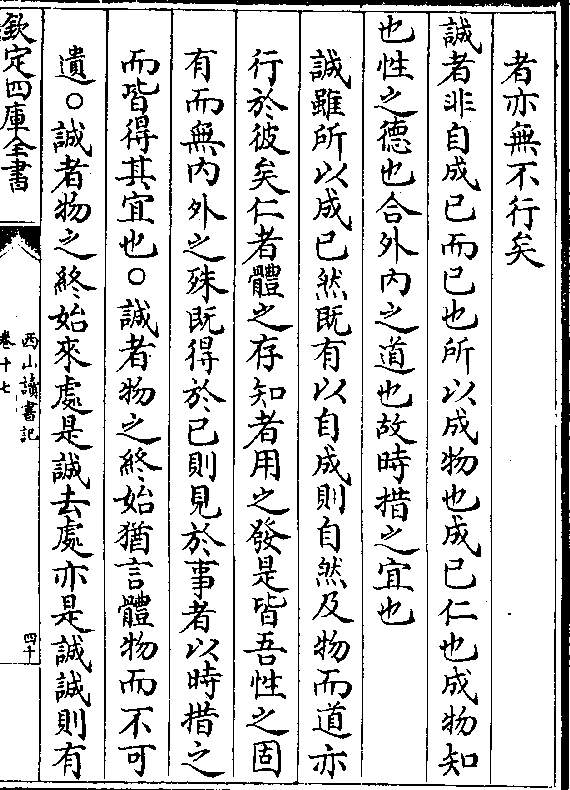 者亦無不行矣
誠者非自成已而已也所以成物也成已仁也成物知
也性之德也合外內之道也故時措之宜也
誠雖所以成已然既有以自成則自然及物而道亦
行於彼矣仁者體之存知者用之發是皆吾性之固
有而無內外之殊既得於已則見於事者以時措之
而皆得其宜也○誠者物之終始猶言體物而不可
遺○誠者物之終始來處是誠去處亦是誠誠則有
欽定四庫全書
西山讀書記
卷十七
四十